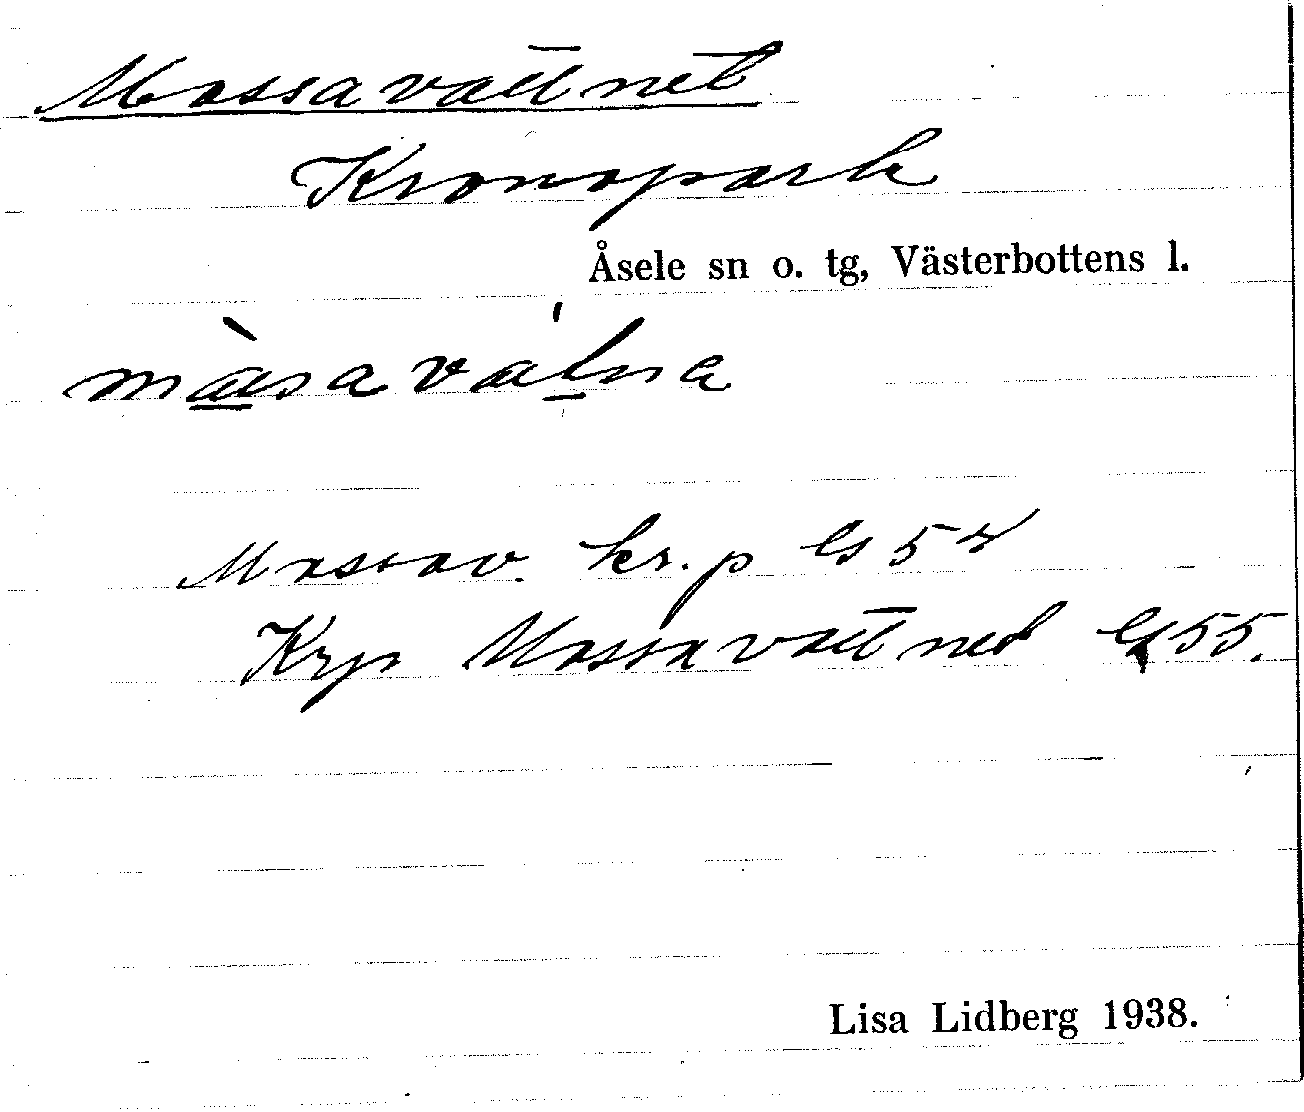 Mossavattnet
Kronopark
Åsele sn o. tg, Västerbottens l.
Mossav. kr.p Gs 54
Krp Mossavattnet Gs 55.
Lisa Lidberg 1938.